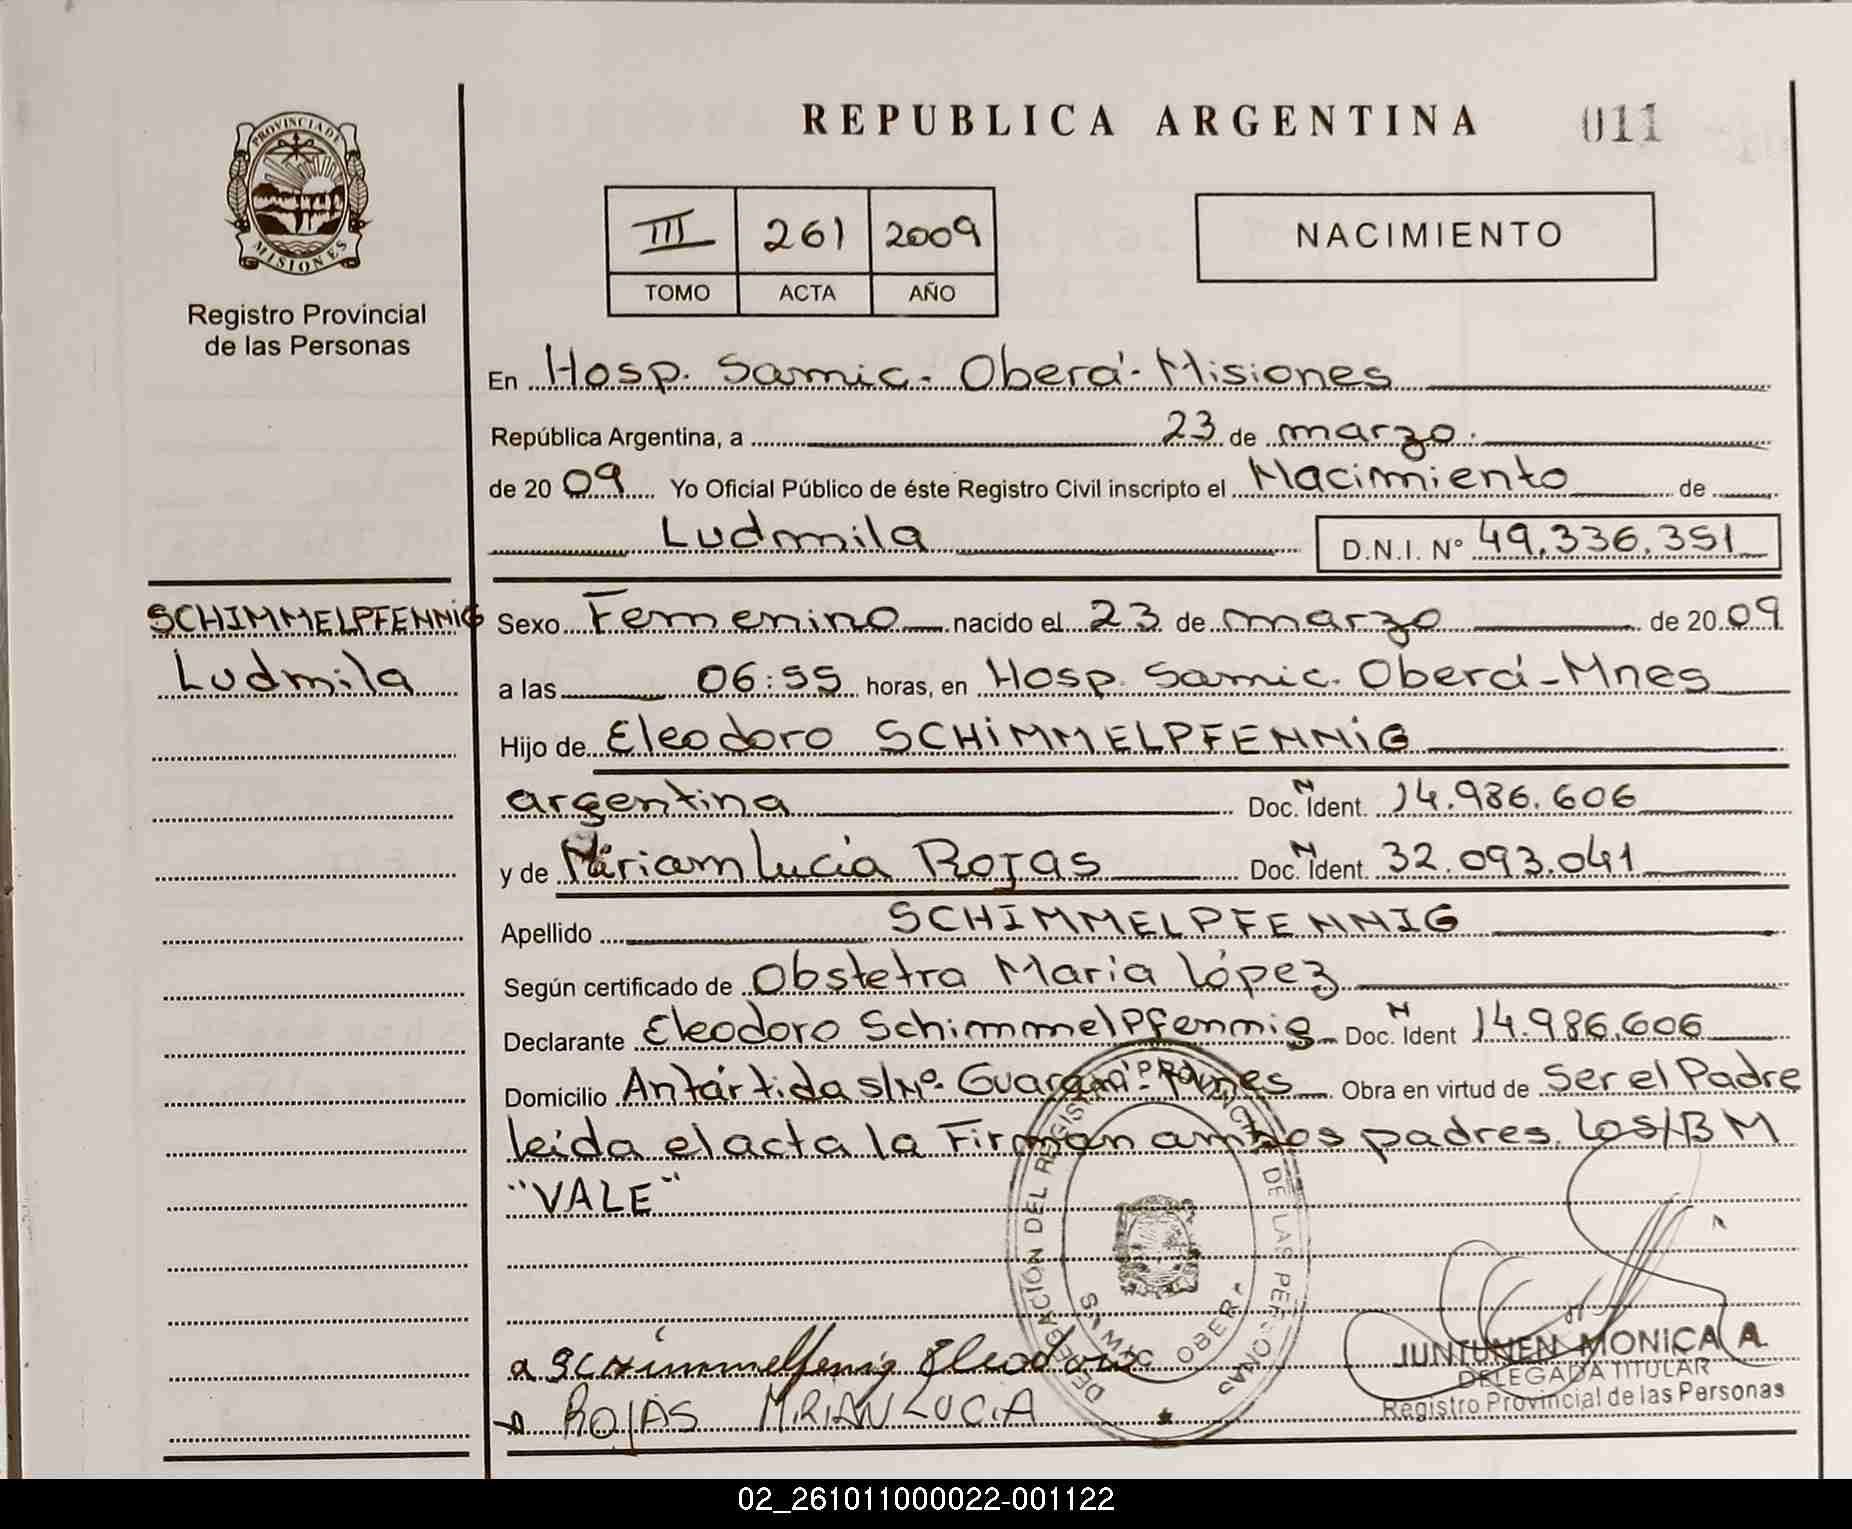 REPUBLICA ARGENTINA 011
PROVINCIA DE
MISIONES
Registro Provincial
de las Personas
III 261 2009
TOMO ACTA AÑO
NACIMIENTO
En Hosp. Samic. Oberá - Misiones
República Argentina, a 23 de marzo.
de 20 09 Yo Oficial Público de éste Registro Civil inscripto el Nacimiento de
Ludmila D.N.I. N° 49.336.351
SCHIMMELPFENNIG
Ludmila
Sexo Femenino nacido el 23 de marzo de 20 09
a las 06:55 horas, en Hosp. Samic. Oberá - Mnes
Hijo de Eleodoro SCHIMMELPFENNIG
argentina Doc. N Ident. 14.986.606
y de Miriam Lucia Rojas Doc. N Ident. 32.093.041
Apellido SCHIMMELPFENNIG
Según certificado de Obstetra Maria López
Declarante Eleodoro Schimmelpfennig Doc. N Ident 14.986.606
Domicilio Antártida s/Nº. Guaraní - Mnes Obra en virtud de Ser el Padre
leida el acta la Firman ambos padres. Los/BM
"VALE"
DELEGACIÓN DEL REGISTRO PROVINCIAL DE LAS PERSONAS
a Schimmelfenig Eleodoro
ROJAS MIRIAN LUCIA
JUNTUNEN MONICA A.
DELEGADA TITULAR
Registro Provincial de las Personas
02_261011000022-001122